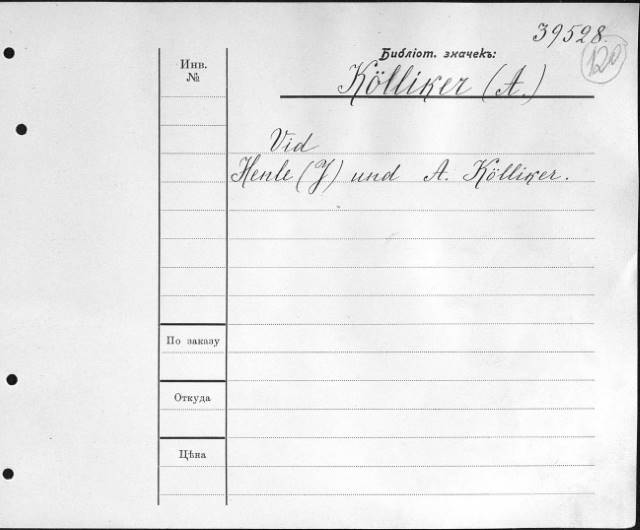 39528.
Библіот. значекъ:
120
Инв.
№
Kölliker (A.)
Vid
Henle (J) und A. Kölliker.
По заказу
Откуда
Цѣна